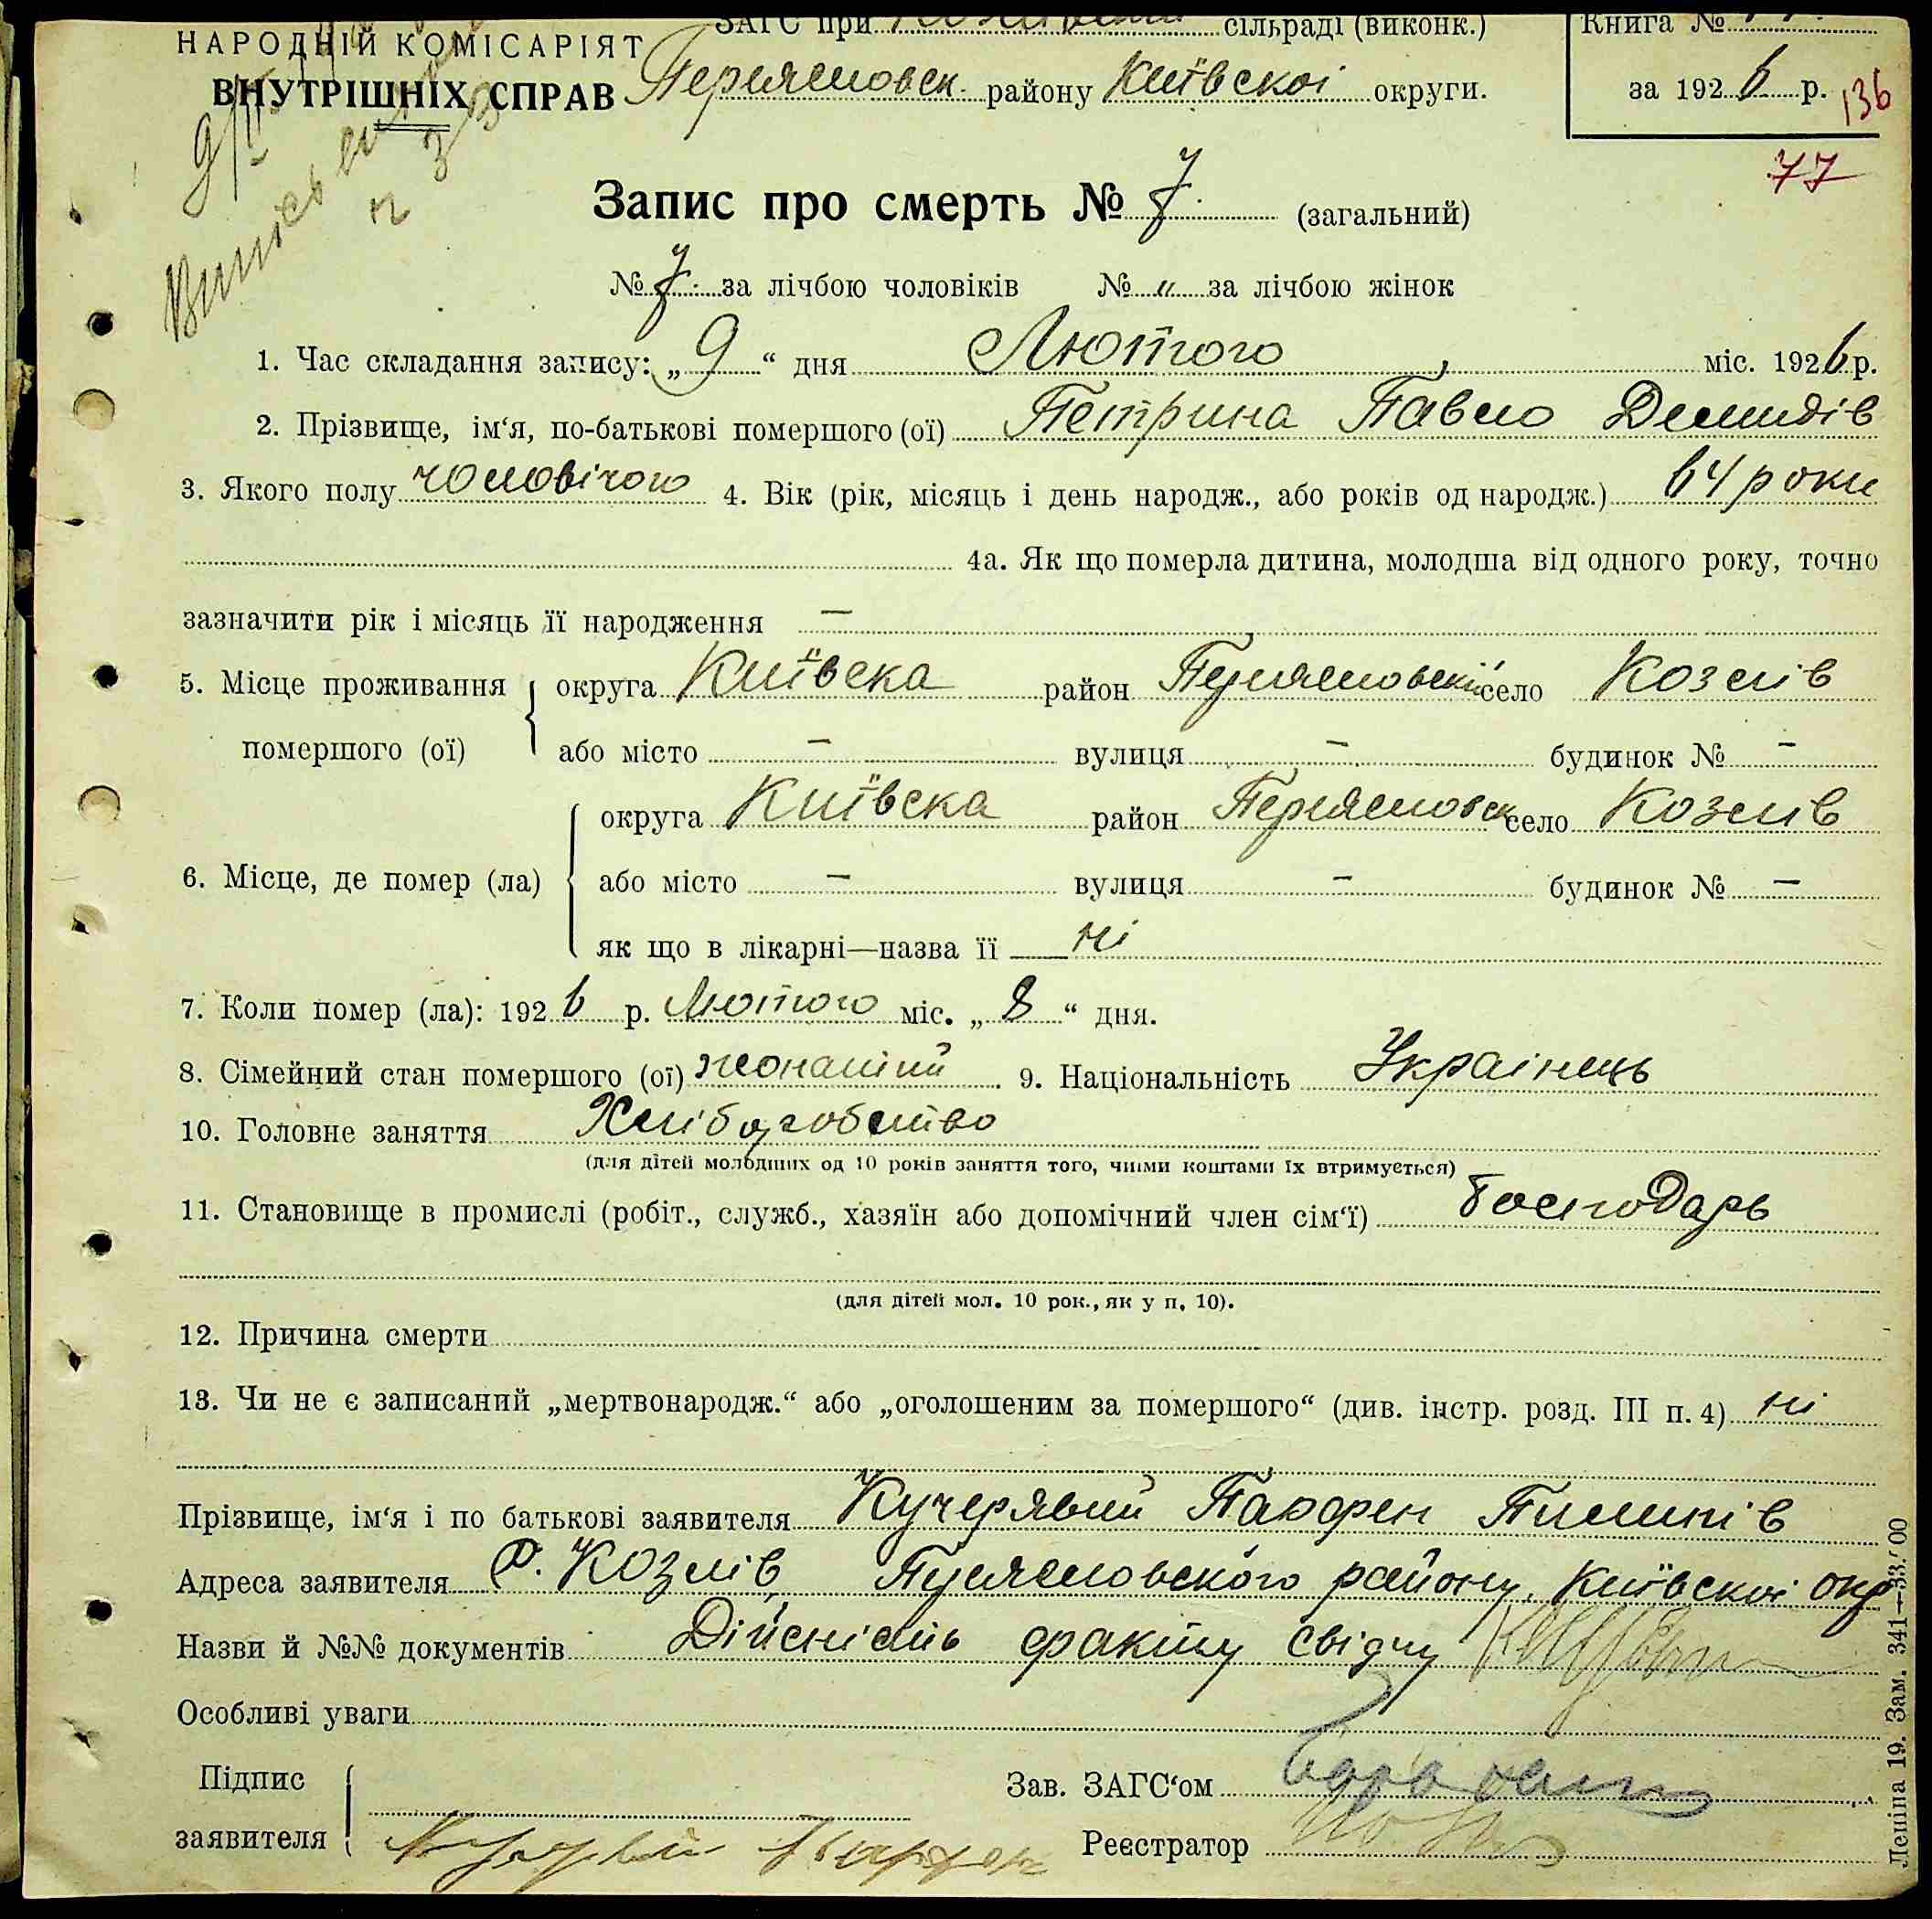 НАРОДНІЙ КОМІСАРІЯТ
ВНУТРІШНІХ СПРАВ
ЗАГС при сільраді (виконк.)
Переяславск. району Київскоі округи.
Книга №
за 1926 р.
136
77
9/II
Запис про смерть № 7. (загальний)
№ 7. за лічбою чоловіків № „ за лічбою жінок
1. Час складання запису: „9“ дня Лютого міс. 1926 р.
2. Прізвище, ім‘я, по-батькові помершого (ої) Петрина Павло Демидів
3. Якого полу чоловічого 4. Вік (рік, місяць і день народж., або років од народж.) 64 роки
4а. Як що померла дитина, молодша від одного року, точно
зазначити рік і місяць її народження —
5. Місце проживання помершого (ої) округа Київска район село Козлів
або місто — вулиця — будинок № —
6. Місце, де помер (ла) округа Київска район село Козлів
або місто — вулиця — будинок № —
як що в лікарні—назва її ні
7. Коли помер (ла): 1926 р. Лютого міс. „8“ дня.
8. Сімейний стан помершого (ої) жонатий 9. Національність Украінець
10. Головне заняття Хліборобство
(для дітей молодших од 10 років заняття того, чиїми коштами їх втримується)
11. Становище в промислі (робіт., служб., хазяїн або допомічний член сім‘ї) Господарь
(для дітей мол. 10 рок., як у п. 10).
12. Причина смерти
13. Чи не є записаний „мертвонародж.“ або „оголошеним за помершого“ (див. інстр. розд. III п. 4) ні
Прізвище, ім‘я і по батькові заявителя Кучерявий Парфен Пилипів
Адреса заявителя с. Козлів, району, Київскоі окр
Назви й №№ документів Дійсність факту свідчу
Особливі уваги
Підпис заявителя Кучерявий Парфен
Зав. ЗАГС‘ом
Реєстратор
Леніна 19. Зам. 341—33.